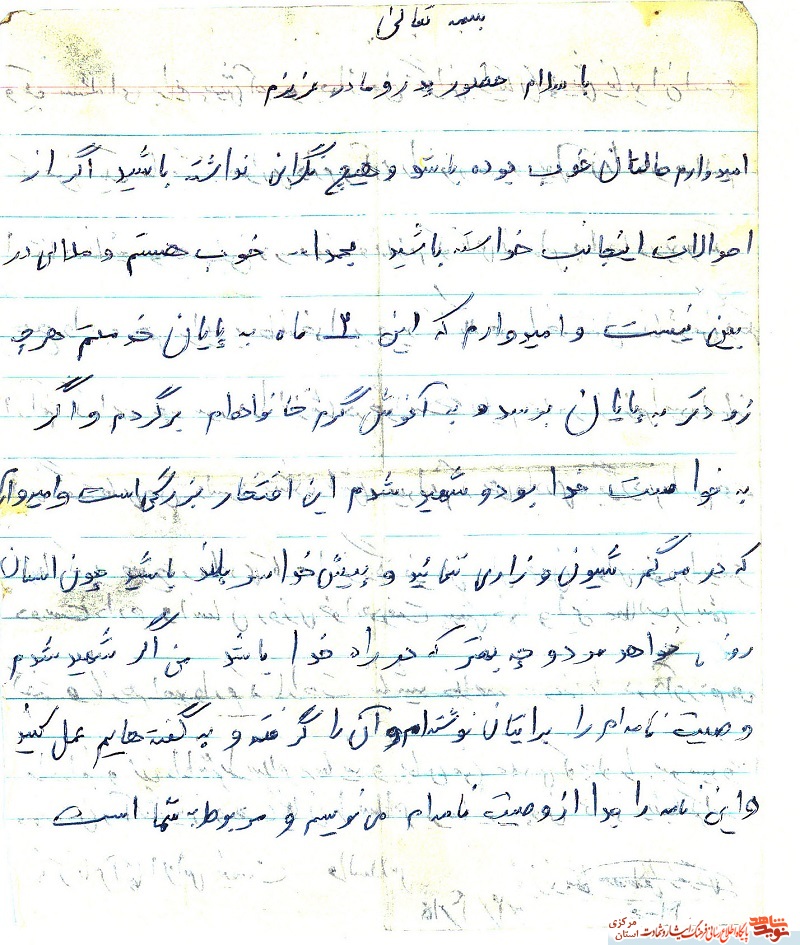 بسمه تعالی
با سلام حضور پدر و مادر عزیزم
امیدوارم حالتان خوب بوده باشد و هیچ نگرانی نداشته باشید اگر از
احوالات اینجانب خواسته باشید بحمدا... خوب هستم و ملالی در
بین نیست و امیدوارم که این ۳ ماه به پایان خدمتم هر چه
زودتر به پایان برسد و به آغوش گرم خانواده‌ام برگردم و اگر
به خواست خدا بود و شهید شدم این افتخار بزرگی است و امیدوار
که در مرگم شیون و زاری ننمائید و پیش خدا سر بلند باشید چون انسان
روزی خواهد مرد و چه بهتر که در راه خدا باشد من اگر شهید شدم
وصیت نامه‌ام را برایتان نوشته‌ام و آن را گرفته و به گفته‌هایم عمل کنید
و این نامه را جدا از وصیت نامه‌ام می‌نویسم و مربوط به شما است
نوید شاهد
پایگاه اطلاع رسانی فرهنگ ایثار و شهادت استان مرکزی